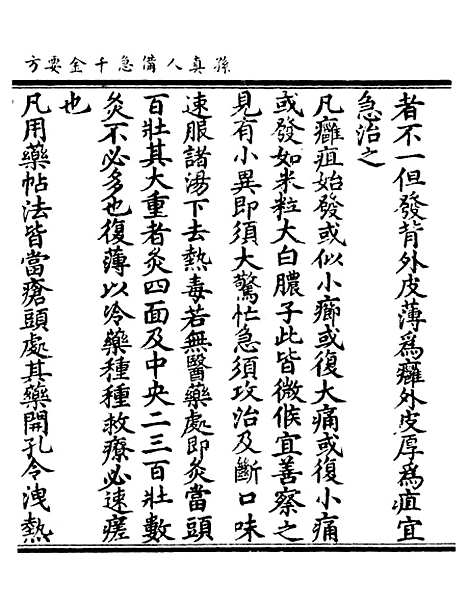 孫真人備急千金要方
者不一但發背外皮薄爲癰外皮厚爲疽宜
急治之
凡癰疽始發或似小癤或復大痛或復小痛
或發如米粒大白膿子此皆微候宜善察之
見有小異即須大驚忙急須攻治及斷口味
速服諸湯下去熱毒若無醫藥處即灸當頭
百壯其大重者灸四面及中央二三百壯數
灸不必多也復薄以冷藥種種救療必速瘥
也
凡用藥帖法皆當瘡頭處其藥開孔令洩熱